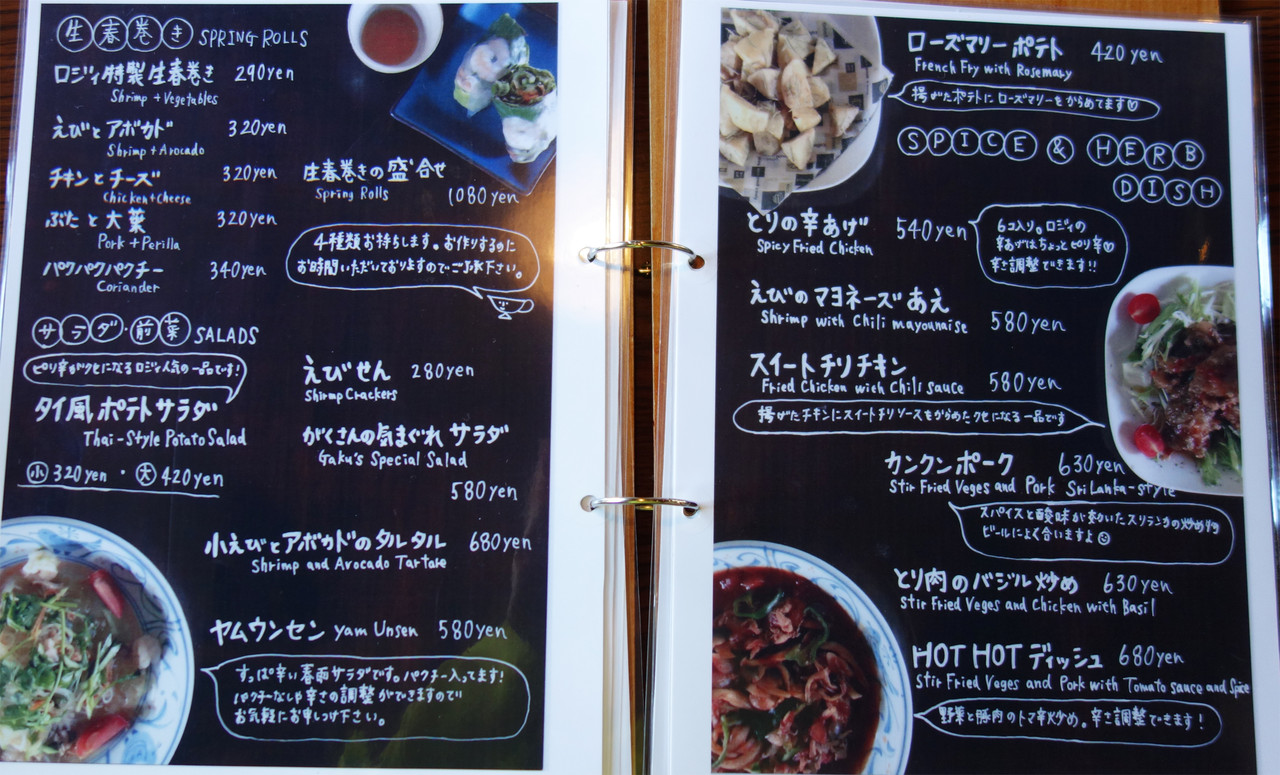 生春巻き SPRING ROLLS
ロジィ特製生春巻き 290yen
Shrimp + Vegetables
えびとアボカド 320yen
Shrimp + Avocado
チキンとチーズ 320yen
Chicken + Cheese
ぶたと大葉 320yen
Pork + Perilla
パクパクパクチー 340yen
Coriander
生春巻きの盛合せ
Spring Rolls 1080yen
4種類お持ちします。お作りするのに
お時間いただいておりますのでご了承下さい。
サラダ・前菜 SALADS
ピリ辛がクセになるロジィ人気の一品です!
タイ風ポテトサラダ
Thai-Style Potato Salad
小 320yen ・ 大 420yen
えびせん 280yen
Shrimp Crackers
がくさんの気まぐれサラダ
Gaku's Special Salad
580yen
小えびとアボカドのタルタル 680yen
Shrimp and Avocado Tartare
ヤムウンセン Yam Unsen 580yen
すっぱ辛い春雨サラダです。パクチー入ってます!
パクチーなしや辛さの調整ができますので
お気軽にお申しつけ下さい。
ローズマリーポテト 420yen
French Fry with Rosemary
揚げたポテトにローズマリーをからめてます♡
SPICE & HERB
DISH
とりの辛あげ 540yen
Spicy Fried Chicken
6コ入り。ロジィの
辛あげはちょっとピリ辛♡
辛さ調整できます!!
えびのマヨネーズあえ
Shrimp with Chili mayounaise 580yen
スイートチリチキン
Fried Chicken with Chili sauce 580yen
揚げたチキンにスイートチリソースをからめたクセになる一品です
カンクンポーク 630yen
Stir Fried Veges and Pork Sri Lanka-style
スパイスと酸味が効いたスリランカの炒め物
ビールによく合いますよ☺
とり肉のバジル炒め 630yen
Stir Fried Veges and Chicken with Basil
HOT HOT ディッシュ 680yen
Stir Fried Veges and Pork with Tomato sauce and Spice
野菜と豚肉のトマ辛炒め。辛さ調整できます!